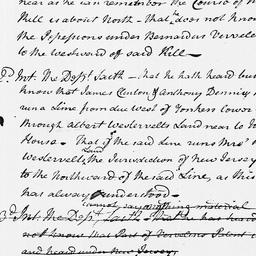 near as he can remember the Course of th
Hill is about North - that he does not know
the Possessions under Bernardus Vervele
to the westward of said Hill -
2d. Int. The Depst. Saith - that he hath heard but
know that James Clinton & Anthony Dennis
run a Line from due West of Yonkers tower
through albert Westervelts Land near to
House - That if the said Line runs Mrs.
Westervelts Land the Jurisdiction of New Jersey
to the Northward of the said Line, as this
has always understood -
cannot say any thing material
3d. Int. The Depst. Saith that he has heard
not know that Part of Vervelens Patent
and heard under New Jersey